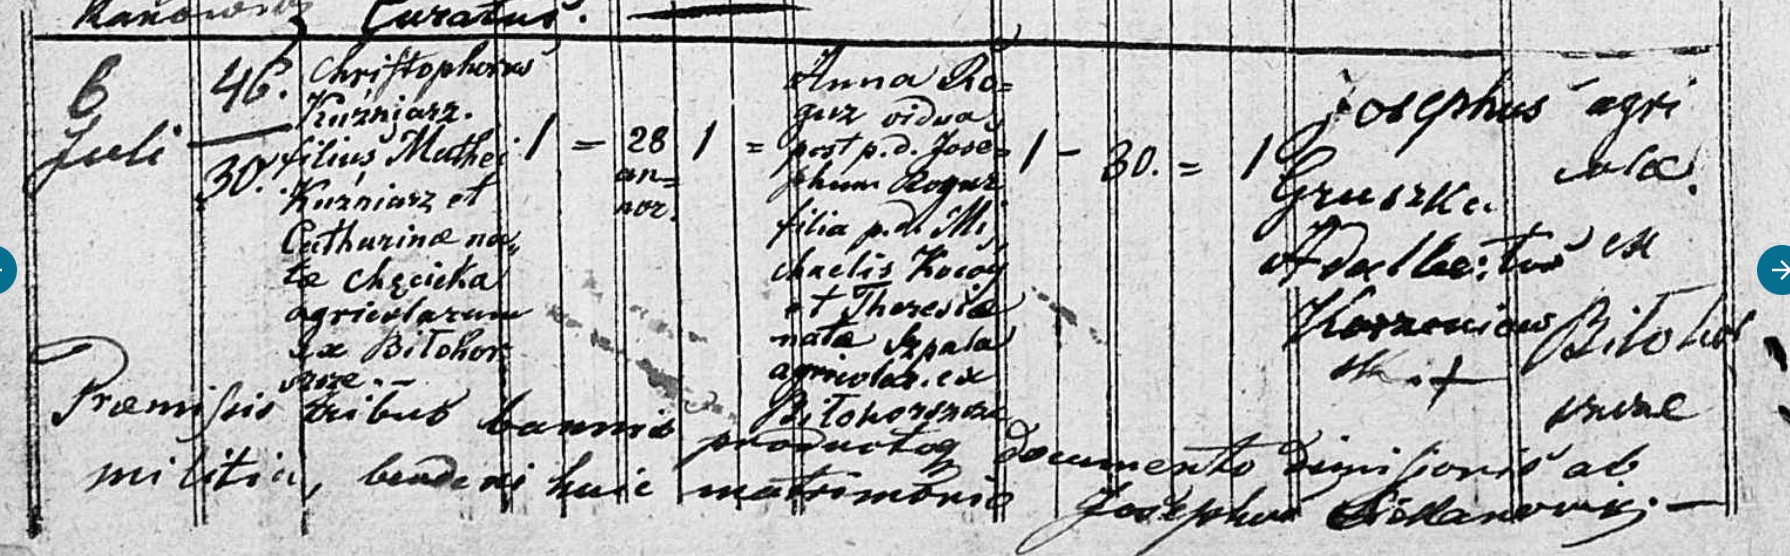 Kanowicz Curatus.
6 Juli
46.
30.
Christophorus
Kuźniarz.
filius Mathei
Kuźniarz et
Catharinæ na„
tæ Chęcicka
agricolarum
ex Biłohor
szcze.–
1 = 28
an=
nor.
1 =
Anna Ro=
guz vidua
post p.d. Jose=
phum Roguz
filia p.d. Mi„
chaelis Kocoy
et Theresiæ
natæ Szpala
agricolar. ex
Biłohorszcze
1 – 30. = 1
Josephus agri
Gruszka colæ.
Adalbertus ex
Biłohor
+
Præmissis tribus bannis productoq documento dimissionis ab
militia, huic matrimonio
Josephus